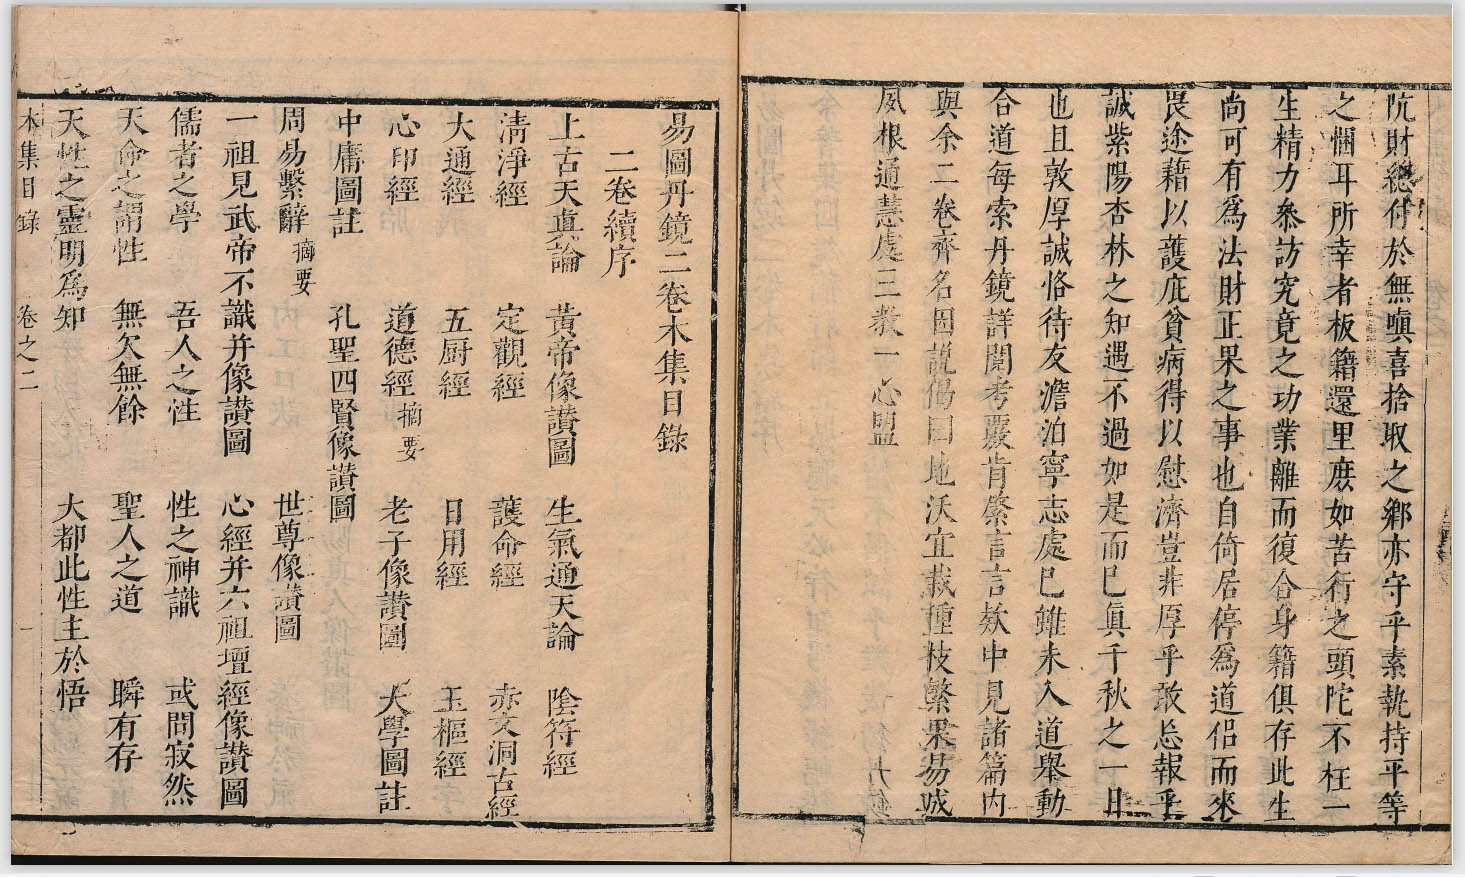 阬財總付於無嗔喜捨取之鄉亦守乎素執持平等
之悃耳所幸者板籍還里庶如苦行之頭陀不枉一
生精力叅訪究竟之功業離而復合身籍俱存此生
尚可有爲法財正果之事也自倚居停爲道侶而來
畏途藉以護庇貧病得以慰濟豈非厚乎敢忘報乎
誠紫陽杏林之知遇不過如是而已眞千秋之一日
也且敦厚誠恪待友澹泊寧志處已雖未入道舉動
合道每索丹鏡詳閱考覈肯綮言言欵中見諸篇内
與余二卷齊名因説偈曰地沃宜栽種枝繁果易成
夙根通慧處三教一心盟
易圖丹鏡二卷木集目錄
二卷續序
上古天眞論 黃帝像讃圖 生氣通天論 陰符經
淸淨經 定觀經 護命經 赤文洞古經
大通經 五厨經 日用經 玉樞經
心印經 道德經摘要 老子像讃圖 大學圖註
中庸圖註 孔聖四賢像讃圖
周易繫辭摘要 世尊像讃圖
一祖見武帝不識并像讃圖 心經并六祖壇經像讃圖
儒者之學 吾人之性 性之神識 或問寂然
天命之謂性 無欠無餘 聖人之道 瞬有存
天性之靈明爲知 大都此性主於悟
木集目錄 卷之二 一